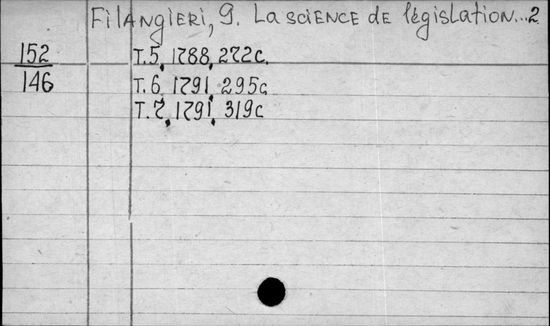 Filangieri, G. La science de législation...2
152
146
T.5, 1788, 272c.
T.6, 1791, 295c
T.7, 1791, 319c